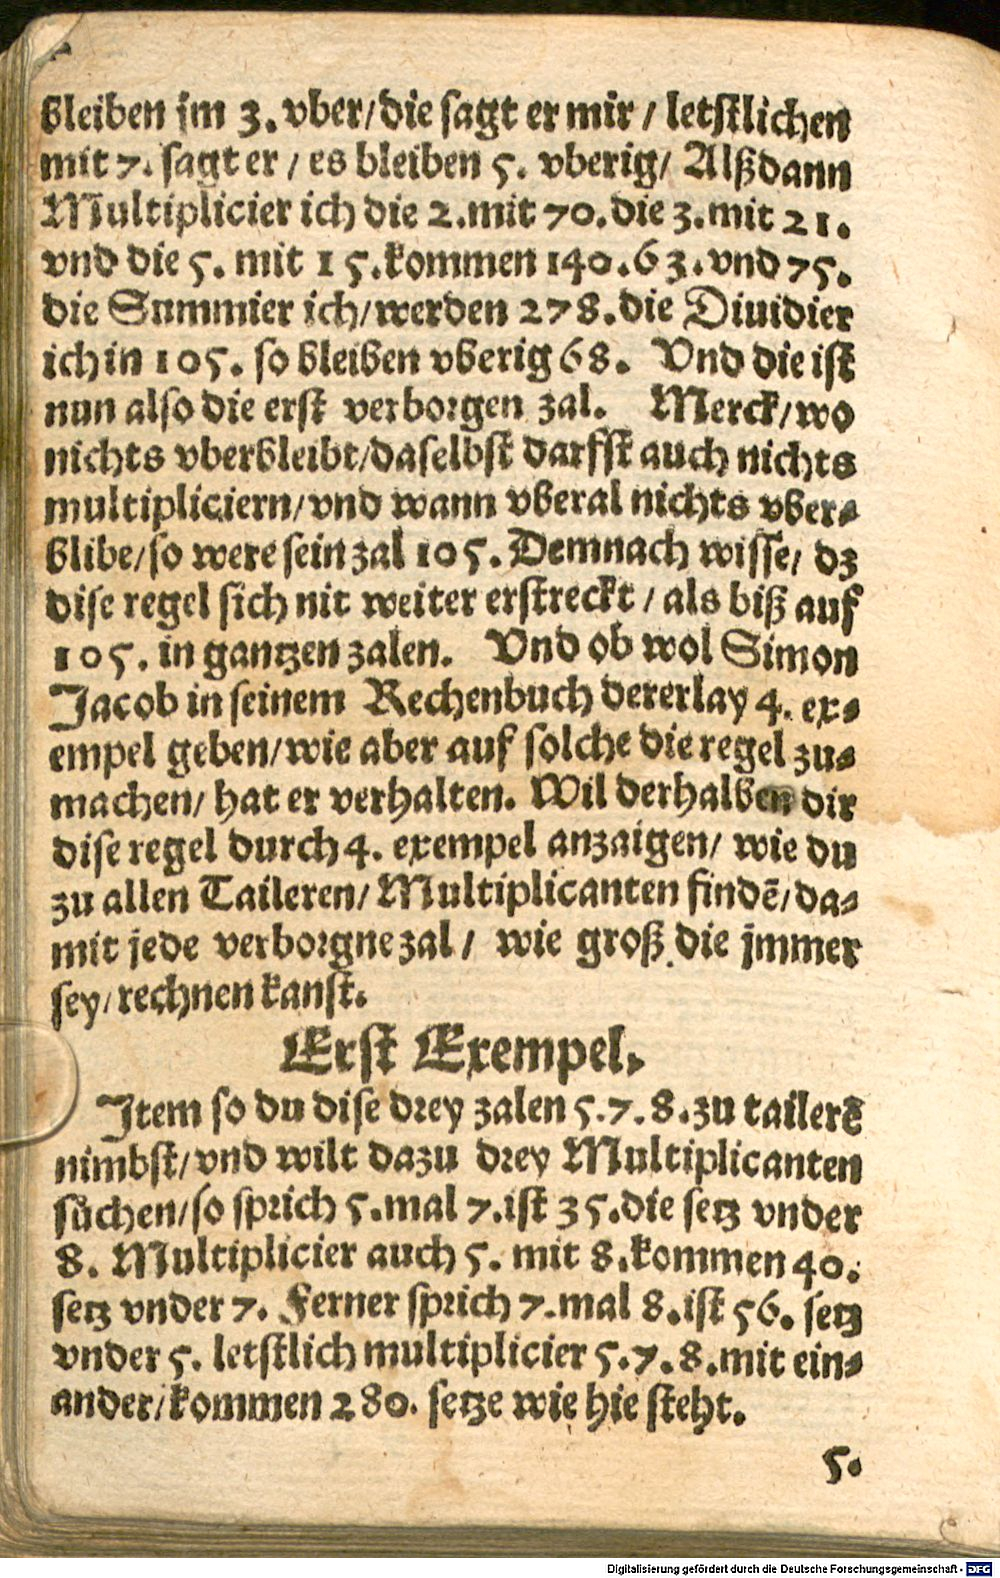 bleiben jm 3. vber/die sagt er mir / letstlichen
mit 7. sagt er / es bleiben 5. vberig/ Alßdann
Multiplicier ich die 2.mit 70.die 3.mit 21.
vnd die 5. mit 15.kommen 140.63.vnd 75.
die Summier ich/werden 278.die Diuidier
ich in 105. so bleiben vberig 68. Vnd die ist
nun also die erst verborgen zal. Merck/wo
nichts vberbleibt/daselbst darfst auch nichts
multipliciern/vnd wann vberal nichts vber-
blibe/so were sein zal 105. Demnach wisse/ dz
dise regel sich nit weiter erstreckt / als biß auf
105. in gantzen zalen. Vnd ob wol Simon
Jacob in seinem Rechenbuch dererlay 4. ex-
empel geben/wie aber auf solche die regel zu-
machen/ hat er verhalten. Wil derhalben dir
dise regel durch 4. exempel anzaigen/ wie du
zu allen Taileren/ Multiplicanten findẽ/da-
mit jede verborgne zal / wie groß die jmmer
sey/rechnen kanst.
Erst Exempel.
Item so du dise drey zalen 5.7.8.zu tailerẽ
nimbst/vnd wilt dazu drey Multiplicanten
sůchen/so sprich 5.mal 7.ist 35.die setz vnder
8. Multiplicier auch 5. mit 8.kommen 40.
setz vnder 7. Ferner sprich 7.mal 8.ist 56. setz
vnder 5. letstlich multiplicier 5.7.8.mit ein-
ander/kommen 280. setze wie hie steht.
5.
Digitalisierung gefördert durch die Deutsche Forschungsgemeinschaft - DFG